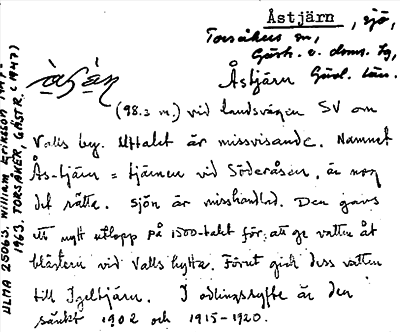 Åstjärn, sjö,
Torsåkers sn,
Gästr. ö. doms. tg,
Åstjärn Gävl. län.
(98.2 m.) vid landsvägen SV om
Valls by. Uttalet är missvisande. Namnet
Ås-tjärn = tjärnen vid Söderåsen, är nog
det rätta. Sjön är misshandlad. Den gavs
ett nytt utlopp på 1500-talet för att ge vatten åt
blästern vid Valls hytta. Förut gick dess vatten
till Igeltjärn. I odlingssyfte är den
sänkt 1902 och 1915-1920.
ULMA 25063. William Eriksson
1963. TORSÅKER, GÄSTR. (1947)